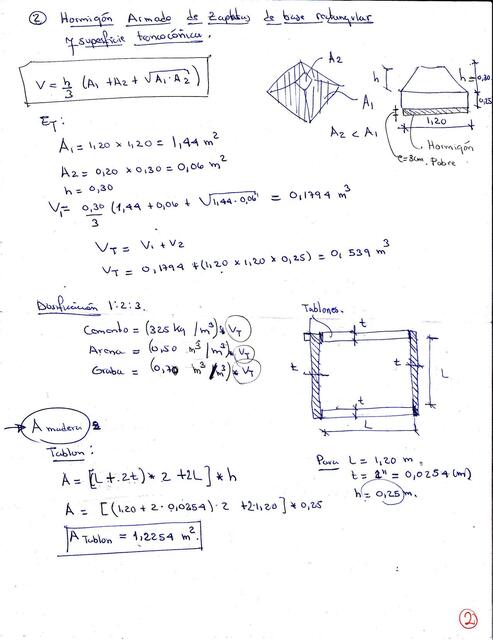 ② Hormigón Armado de Zapatas de base rectangular
y superficie troncocónica.
V = h/3 (A1 + A2 + √A1·A2)
A2
A1
A2 < A1
h
h = 0,30
0,25
1,20
Hormigón
Pobre
e=8cm.
Ej:
A1 = 1,20 x 1,20 = 1,44 m²
A2 = 0,20 x 0,30 = 0,06 m²
h = 0,30
V1 = 0,30/3 (1,44 + 0,06 + √1,44·0,06) = 0,1794 m³
VT = V1 + V2
VT = 0,1794 + (1,20 x 1,20 x 0,25) = 0,539 m³
Dosificación 1:2:3.
Cemento = (325 kg/m³) * VT
Arena = (0,50 m³/m³) * VT
Graba = (0,70 m³/m³) * VT
Tablones.
t
t
t
t
L
L
→ A madera
Tablon:
A = [(L + 2t) * 2 + 2L] * h
A = [(1,20 + 2·0,0254)·2 + 2·1,20] * 0,25
A Tablon = 1,2254 m².
Para L = 1,20 m.
t = 1" = 0,0254 (m)
h = 0,25 m.
2